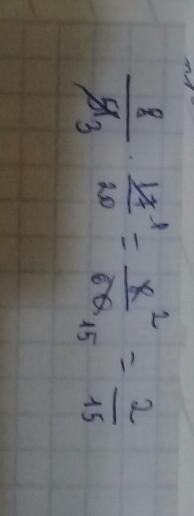 8/51 3 · 17 1/20 = 8 2/60 15 = 2/15